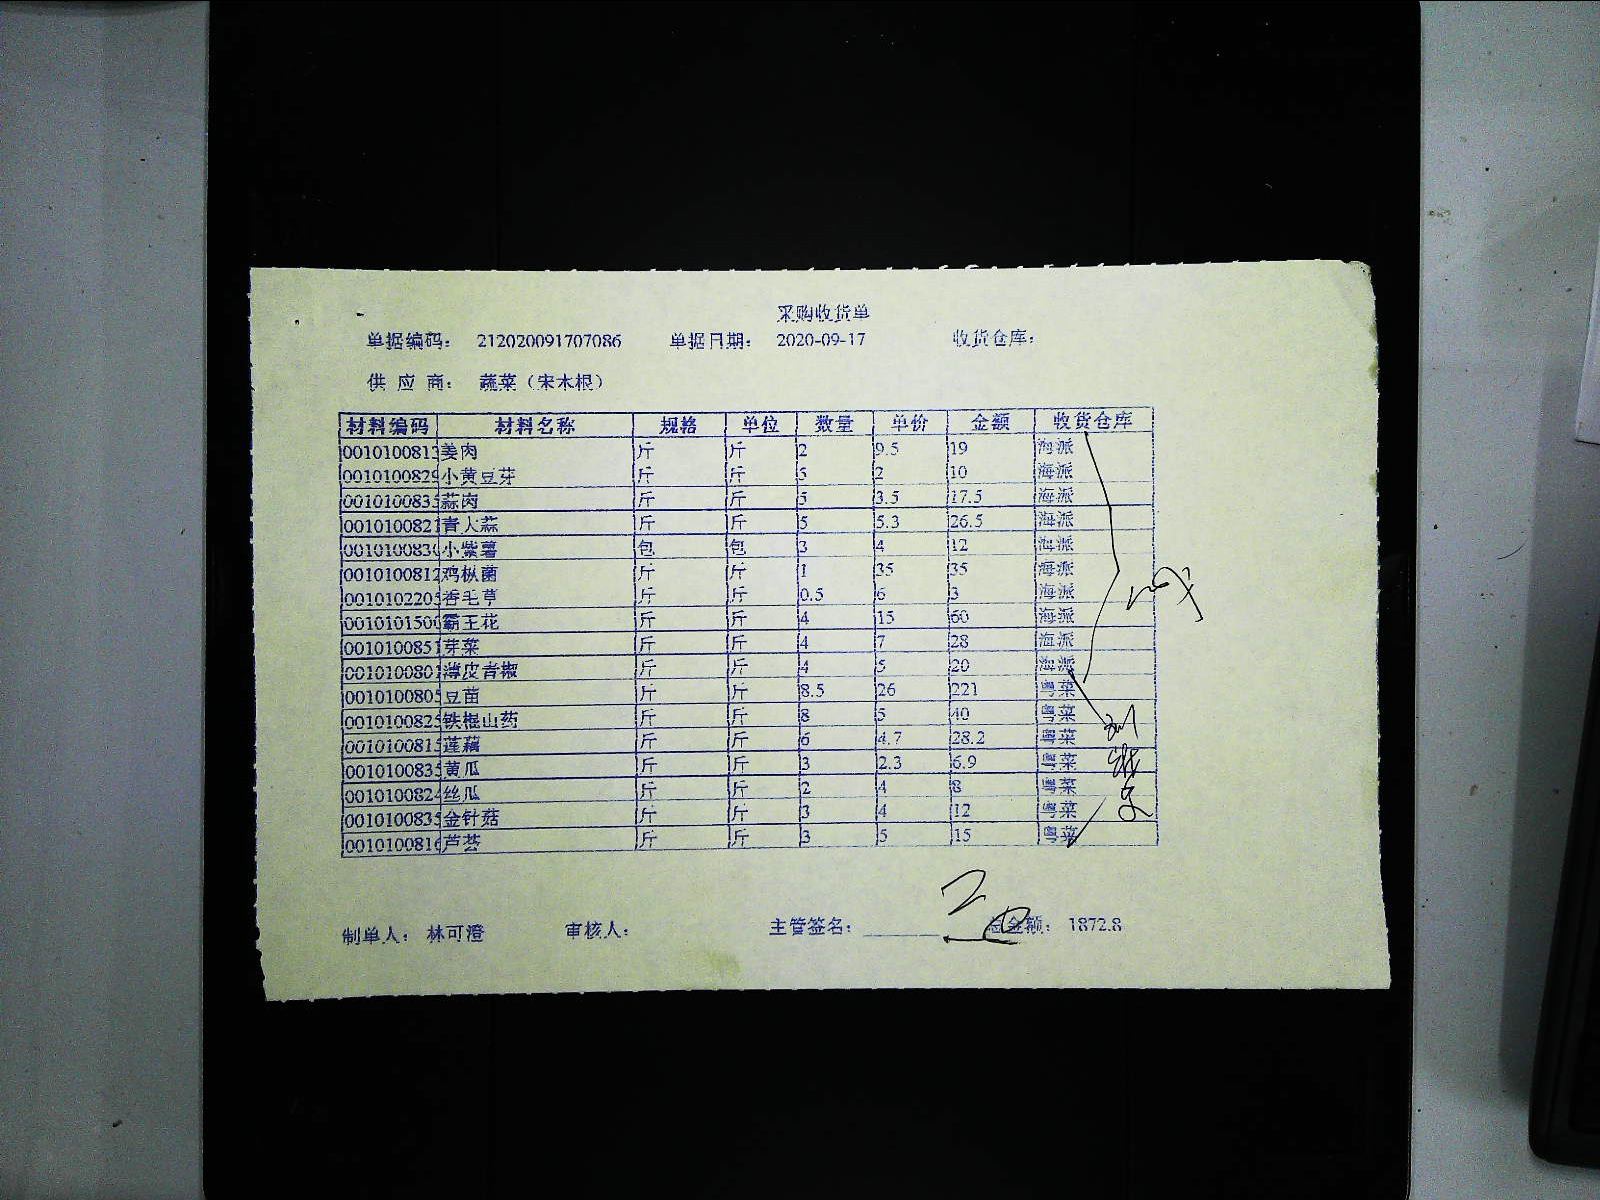 采购收货单
单据编码： 212020091707086 单据日期： 2020-09-17 收货仓库：
供 应 商： 蔬菜（宋木根）
材料编码 材料名称 规格 单位 数量 单价 金额 收货仓库
001010081 姜肉 斤 斤 2 9.5 19 海派
001010082 小黄豆芽 斤 斤 5 2 10 海派
001010083 蒜肉 斤 斤 5 3.5 17.5 海派
001010082 青大蒜 斤 斤 5 5.3 26.5 海派
001010083 小紫薯 包 包 3 4 12 海派
001010081 鸡枞菌 斤 斤 1 35 35 海派
001010220 香毛草 斤 斤 0.5 6 3 海派
001010150 霸王花 斤 斤 4 15 60 海派
001010085 芽菜 斤 斤 4 7 28 海派
001010080 薄皮青椒 斤 斤 4 5 20 海派
001010080 豆苗 斤 斤 8.5 26 221 粤菜
001010082 铁棍山药 斤 斤 8 5 40 粤菜
001010081 莲藕 斤 斤 6 4.7 28.2 粤菜
001010083 黄瓜 斤 斤 3 2.3 6.9 粤菜
001010082 丝瓜 斤 斤 2 4 8 粤菜
001010083 金针菇 斤 斤 3 4 12 粤菜
001010081 芦荟 斤 斤 3 5 15 粤菜
制单人： 林可澄 审核人： 主管签名： 总金额： 1872.8